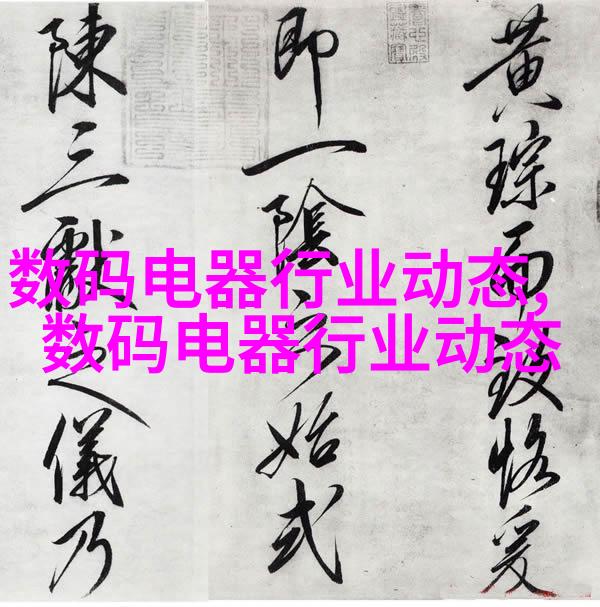 黄琮而恪爰
即一陰之始式
陳三獻之儀乃
数码电器行业动态,
数码电器行业动态